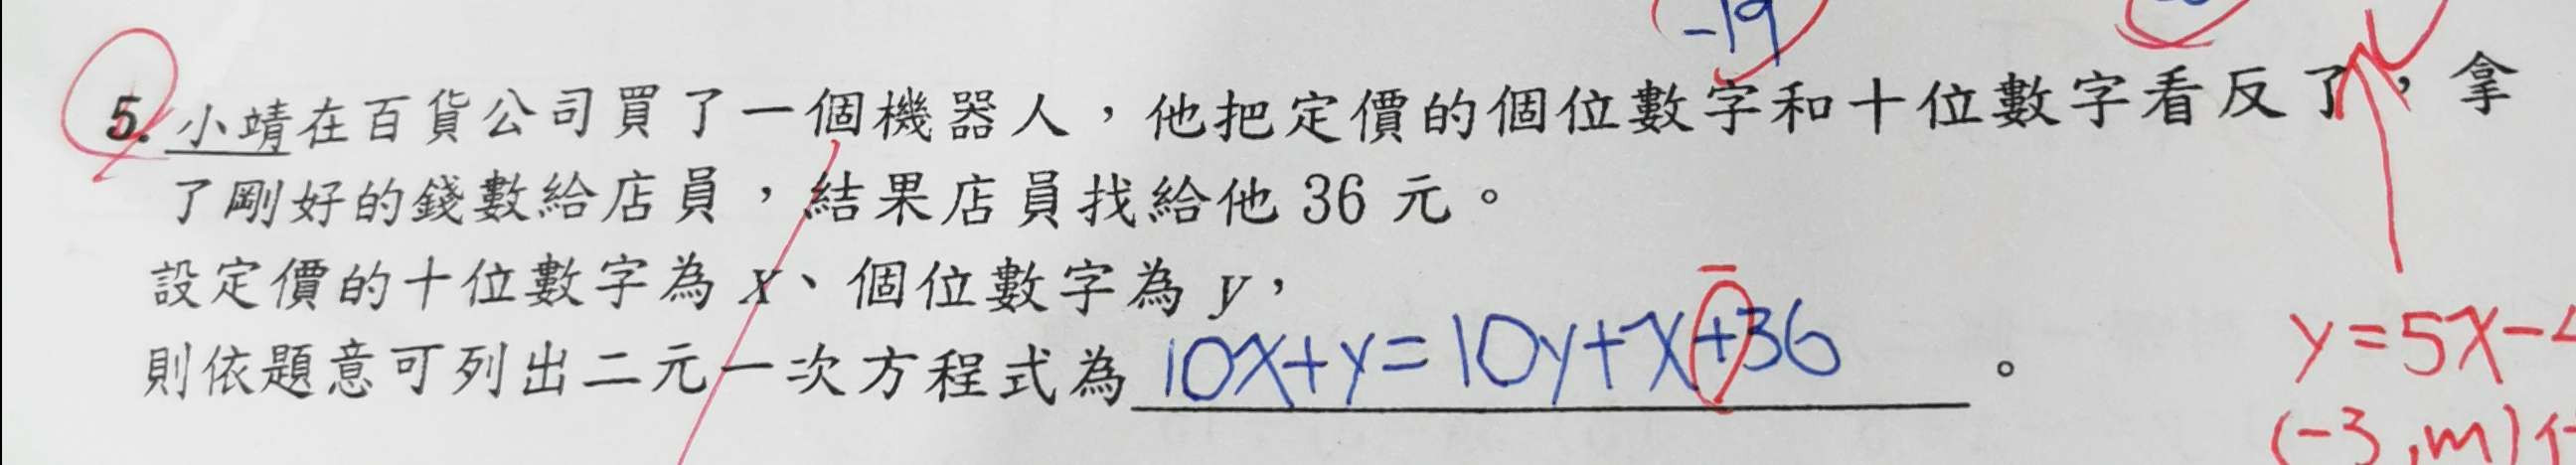 -19
5. 小靖在百貨公司買了一個機器人，他把定價的個位數字和十位數字看反了，拿
了剛好的錢數給店員，結果店員找給他 36 元。
設定價的十位數字為 x、個位數字為 y，
則依題意可列出二元一次方程式為 10x+y=10y+x+36 。
−
y=5x-
(-3,m)